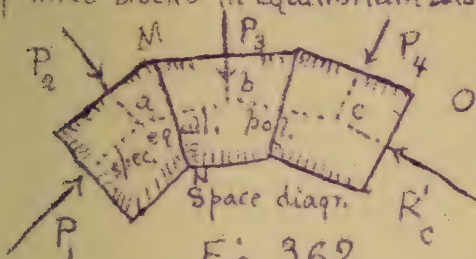 three blocks in equilibrium
M
P₃
P₂
P₄
O
a
b
c
spec. eq. pol.
pon.
N
Space diagr.
P₁
R'c
Fig. 362